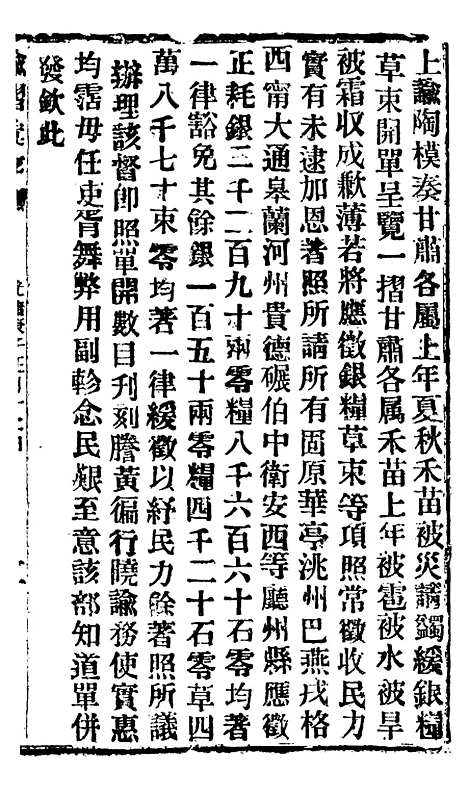 上諭陶模奏甘肅各屬上年夏秋禾苗被災請蠲緩銀糧
草束開單呈覽一摺甘肅各属禾苗上年被雹被水被旱
被霜收成歉薄若將應徵銀糧草束等項照常徵收民力
實有未逮加恩著照所請所有固原華亭洮州巴燕戎格
西甯大通皋蘭河州貴德碾伯中衛安西等廳州縣應徵
正耗銀二千二百九十兩零糧八千六百六十石零均著
一律豁免其餘銀一百五十兩零糧四千二十石零草四
萬八千七十束零均著一律緩徵以紓民力餘著照所議
辦理該督卽照單開數目刋刻謄黃徧行曉諭務使實惠
均霑毋任吏胥舞弊用副軫念民艱至意該部知道單併
發欽此